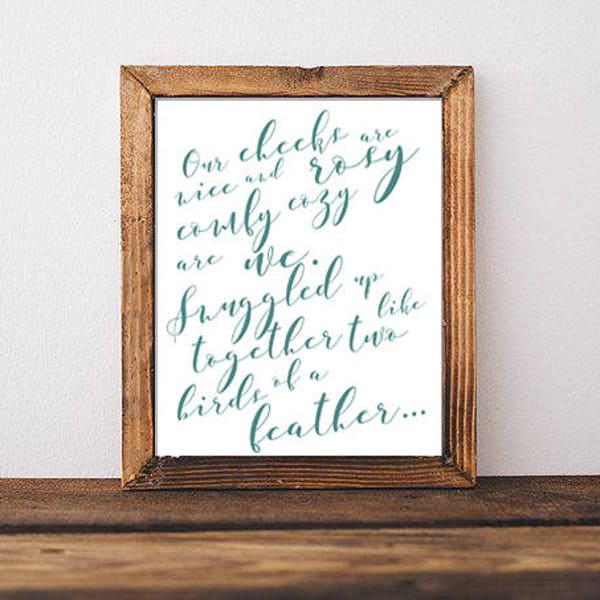 Our cheeks are
nice and rosy
comfy cozy
are we.
Snuggled up
together two like
birds of a
feather...